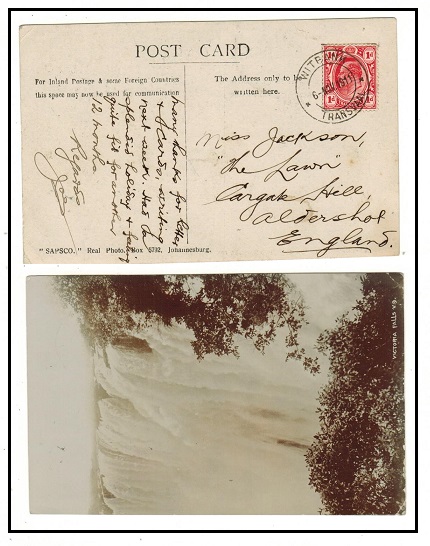 POST CARD
For Inland Postage & some Foreign Countries
this space may now be used for communication
The Address only to be
written here.
WITBANK
TRANSVAAL
1d 1d
many thanks for letter
& Cards, writing
next week. Had a
splendid holiday & feeling
quite fit for another
12 months
Regards
Miss Jackson,
"The Lawn"
Cargate Hill,
Aldershot
England.
"SAPSCO." Real Photo, Box 5792, Johannesburg.
VICTORIA FALLS